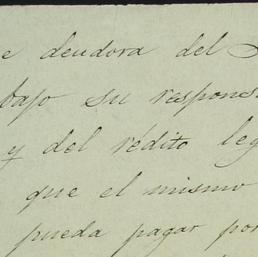 e deudora del
bajo su respons
y del rédito leg
que el mismo
pueda pagar por